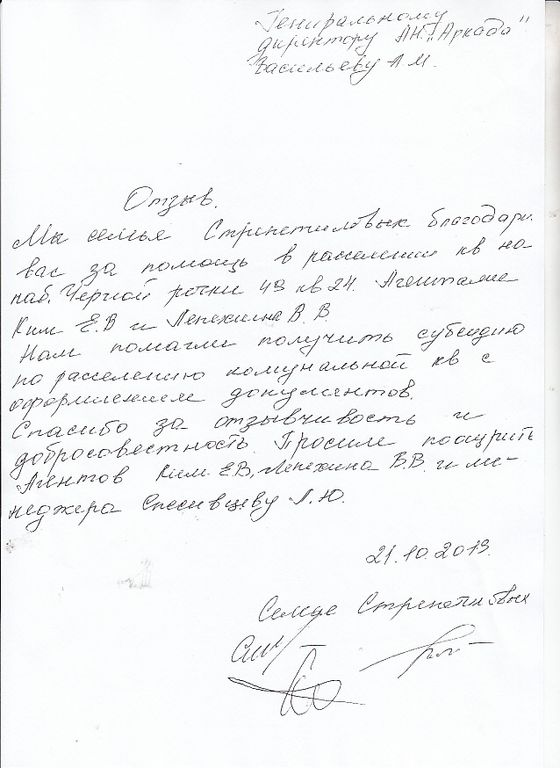 Гениральному
директору АН. "Аркада"
Васильеву А М.
Отзыв.
Мы семья благодарим
вас за помощь в расселении кв на
наб. Черной речки 49 кв 24. Агентами
Ким Е.В и Ленехина В. В.
Нам помагли получить субсидию
по расселению комунальной кв с
оформлением документов.
Спасибо за отзывчивость и
добросовестность. Просим поощрить
Агентов Ким. Е.В, Ленехина В.В. и ме-
неджера Спесивцеву Л.Ю.
21.10.2013.
Семья